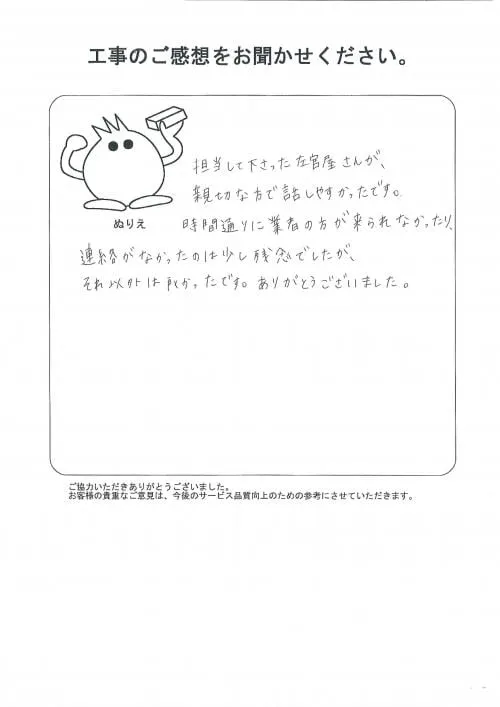 工事のご感想をお聞かせください。
担当して下さった左官屋さんが、
親切な方で話しやすかったです。
ぬりえ
時間通りに業者の方が来られなかったり、
連絡がなかったのは少し残念でしたが、
それ以外は良かったです。ありがとうございました。
ご協力いただきありがとうございました。
お客様の貴重なご意見は、今後のサービス品質向上のための参考にさせていただきます。